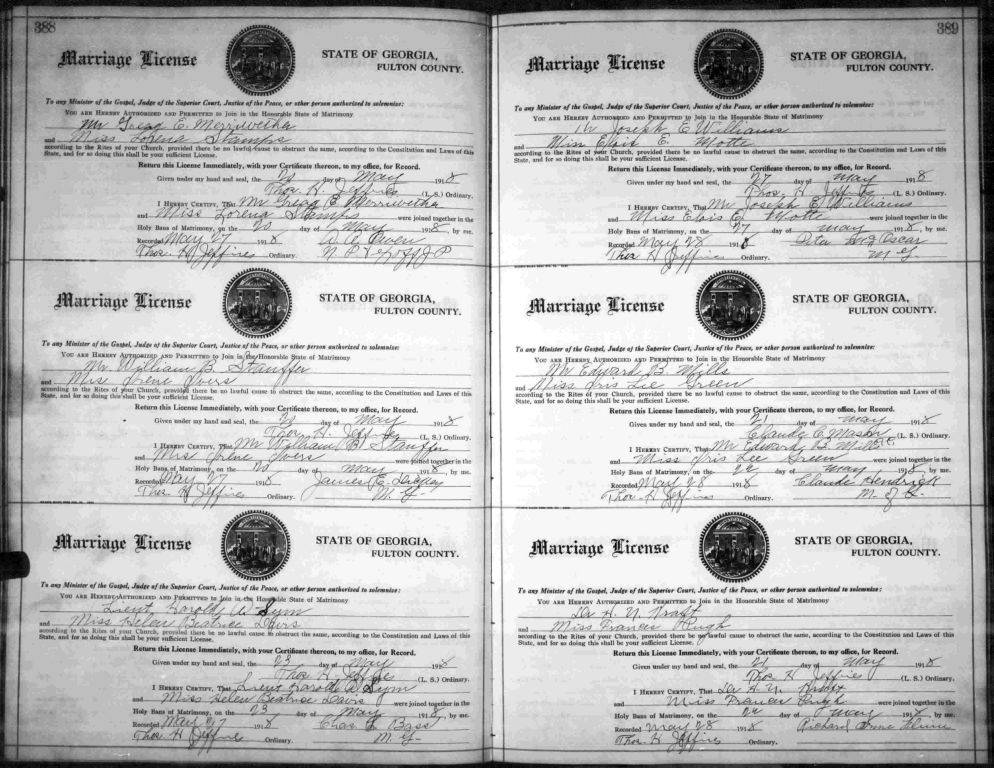 388
Marriage License
STATE OF GEORGIA,
FULTON COUNTY.
To any Minister of the Gospel, Judge of the Superior Court, Justice of the Peace, or other person authorized to solemnize:
YOU ARE HEREBY AUTHORIZED AND PERMITTED to Join in the Honorable State of Matrimony
Mr Gregg E. Merriwetha
and Miss Lorena Stamps
according to the Rites of your Church, provided there be no lawful cause to obstruct the same, according to the Constitution and Laws of this
State, and for so doing this shall be your sufficient License.
Return this License Immediately, with your Certificate thereon, to my office, for Record.
Given under my hand and seal, the 20 day of May 1918
Thos. H. Jeffries (L. S.) Ordinary.
I HEREBY CERTIFY, That Mr Gregg E Merriwetha
and Miss Lorena Stamps were joined together in the
Holy Bans of Matrimony, on the 20 day of May 1918, by me.
Recorded May 27 1918 Owen
Thos H Jeffries Ordinary. N. P. J P
Marriage License
STATE OF GEORGIA,
FULTON COUNTY.
To any Minister of the Gospel, Judge of the Superior Court, Justice of the Peace, or other person authorized to solemnize:
YOU ARE HEREBY AUTHORIZED AND PERMITTED to Join in the Honorable State of Matrimony
Mr. William B. Stauffer
and Miss Irene Ivers
according to the Rites of your Church, provided there be no lawful cause to obstruct the same, according to the Constitution and Laws of this
State, and for so doing this shall be your sufficient License.
Return this License Immediately, with your Certificate thereon, to my office, for Record.
Given under my hand and seal, the 20 day of May 1918
Thos H. Jeffries (L. S.) Ordinary.
I HEREBY CERTIFY, That Mr William B. Stauffer
and Miss Irene Ivers were joined together in the
Holy Bans of Matrimony, on the 20 day of May 1918, by me.
Recorded May 27 1918 James
Thos H Jeffries Ordinary. M. G.
Marriage License
STATE OF GEORGIA,
FULTON COUNTY.
To any Minister of the Gospel, Judge of the Superior Court, Justice of the Peace, or other person authorized to solemnize:
YOU ARE HEREBY AUTHORIZED AND PERMITTED to Join in the Honorable State of Matrimony
Lieut Harold A Sym
and Miss Helen Beatrice Davis
according to the Rites of your Church, provided there be no lawful cause to obstruct the same, according to the Constitution and Laws of this
State, and for so doing this shall be your sufficient License.
Return this License Immediately, with your Certificate thereon, to my office, for Record.
Given under my hand and seal, the 23 day of May 1918
Thos H Jeffries (L. S.) Ordinary.
I HEREBY CERTIFY, That Lieut Harold A Sym
and Miss Helen Beatrice Davis were joined together in the
Holy Bans of Matrimony, on the 23 day of May 1918, by me.
Recorded May 27 1918 Chas Bass
Thos H Jeffries Ordinary. M. G.
389
Marriage License
STATE OF GEORGIA,
FULTON COUNTY.
To any Minister of the Gospel, Judge of the Superior Court, Justice of the Peace, or other person authorized to solemnize:
YOU ARE HEREBY AUTHORIZED AND PERMITTED to Join in the Honorable State of Matrimony
Mr Joseph E Williams
and Miss E. Motte
according to the Rites of your Church, provided there be no lawful cause to obstruct the same, according to the Constitution and Laws of this
State, and for so doing this shall be your sufficient License.
Return this License Immediately, with your Certificate thereon, to my office, for Record.
Given under my hand and seal, the 27 day of May 1918
Thos. H Jeffries (L. S.) Ordinary.
I HEREBY CERTIFY, That Mr Joseph E Williams
and Miss Elois E. Motte were joined together in the
Holy Bans of Matrimony, on the 27 day of May 1918, by me.
Recorded May 28 1918 Oscar
Thos H Jeffries Ordinary. M G.
Marriage License
STATE OF GEORGIA,
FULTON COUNTY.
To any Minister of the Gospel, Judge of the Superior Court, Justice of the Peace, or other person authorized to solemnize:
YOU ARE HEREBY AUTHORIZED AND PERMITTED to Join in the Honorable State of Matrimony
Mr Edward B. Mills
and Miss Iris Lee Green
according to the Rites of your Church, provided there be no lawful cause to obstruct the same, according to the Constitution and Laws of this
State, and for so doing this shall be your sufficient License.
Return this License Immediately, with your Certificate thereon, to my office, for Record.
Given under my hand and seal, the 21 day of May 1918
Claude C Mason (L. S.) Ordinary.
I HEREBY CERTIFY, That Mr Edward B. Mills
and Miss Iris Lee Green were joined together in the
Holy Bans of Matrimony, on the 22 day of May 1918, by me.
Recorded May 28 1918 Claude Hendrick
Thos H Jeffries Ordinary. M. of G.
Marriage License
STATE OF GEORGIA,
FULTON COUNTY.
To any Minister of the Gospel, Judge of the Superior Court, Justice of the Peace, or other person authorized to solemnize:
YOU ARE HEREBY AUTHORIZED AND PERMITTED to Join in the Honorable State of Matrimony
Dr H. N. Kraft
and Miss Frances Pugh
according to the Rites of your Church, provided there be no lawful cause to obstruct the same, according to the Constitution and Laws of this
State, and for so doing this shall be your sufficient License.
Return this License Immediately, with your Certificate thereon, to my office, for Record.
Given under my hand and seal, the 21 day of May 1918
Thos H Jeffries (L. S.) Ordinary.
I HEREBY CERTIFY, That Dr H. N. Kraft
and Miss Frances Pugh were joined together in the
Holy Bans of Matrimony, on the 22 day of May 1918, by me.
Recorded May 28 1918 Richard Orme Flinn
Thos H Jeffries Ordinary.